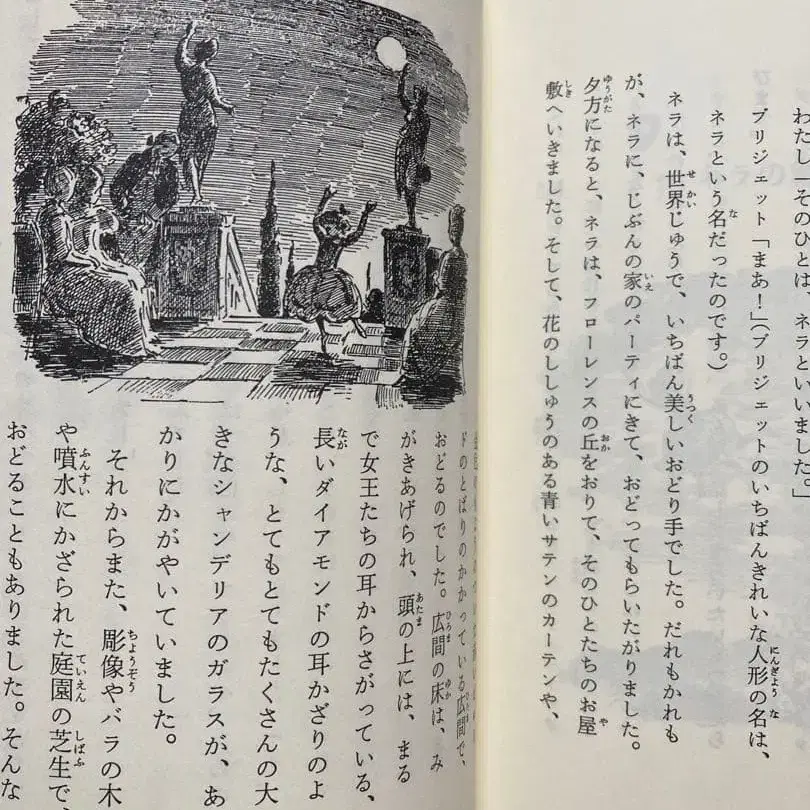 わたし「そのひとは、ネラといいました。」
ブリジェット「まあ!」(ブリジェットのいちばんきれいな人形の名は、
ネラという名だったのです。)
ネラは、世界じゅうで、いちばん美しいおどり手でした。だれもかれも
が、ネラに、じぶんの家のパーティにきて、おどってもらいたがりました。
夕方になると、ネラは、フローレンスの丘をおりて、そのひとたちのお屋
敷へいきました。そして、花のししゅうのある青いサテンのカーテンや、
ドのとばりのかかっている広間で、
おどるのでした。広間の床は、み
がきあげられ、頭の上には、まる
で女王たちの耳からさがっている、
長いダイアモンドの耳かざりのよ
うな、とてもとてもたくさんの大
きなシャンデリアのガラスが、あ
かりにかがやいていました。
それからまた、彫像やバラの木
や噴水にかざられた庭園の芝生で、
おどることもありました。そんな